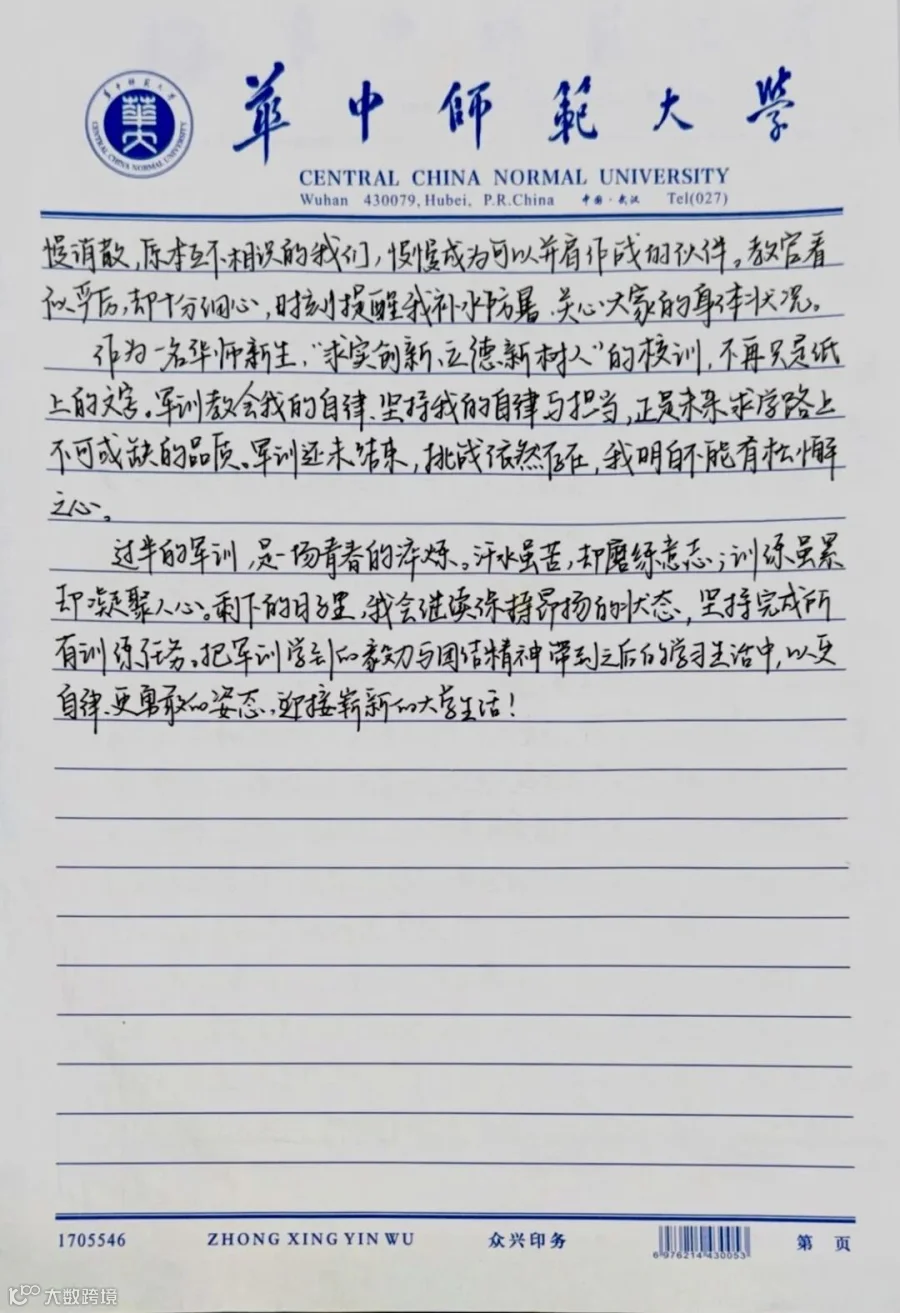 華中師範大學
CENTRAL CHINA NORMAL UNIVERSITY
Wuhan 430079, Hubei, P.R.China 中国·武汉 Tel(027)
華中師範大學
華大
CENTRAL CHINA NORMAL UNIVERSITY
慢消散,原本互不相识的我们,慢慢成为可以并肩作战的伙伴。教官看
似严厉,却十分细心,时刻提醒我补水防暑、关心大家的身体状况。
作为一名华师新生,“求实创新、立德新树人”的校训,不再只是纸
上的文字。军训教会我的自律、坚持我的自律与担当,正是未来求学路上
不可或缺的品质。军训还未结束,挑战依然存在,我明白不能有松懈
之心。
过半的军训,是一场青春的淬炼。汗水虽苦,却磨练意志;训练虽累
却凝聚人心。剩下的日子里,我会继续保持昂扬的状态,坚持完成所
有训练任务。把军训学到的毅力与团结精神带到之后的学习生活中,以更
自律、更勇敢的姿态,迎接崭新的大学生活!
1705546 ZHONG XING YIN WU 众兴印务 6 976214 430053 第 页
大数跨境